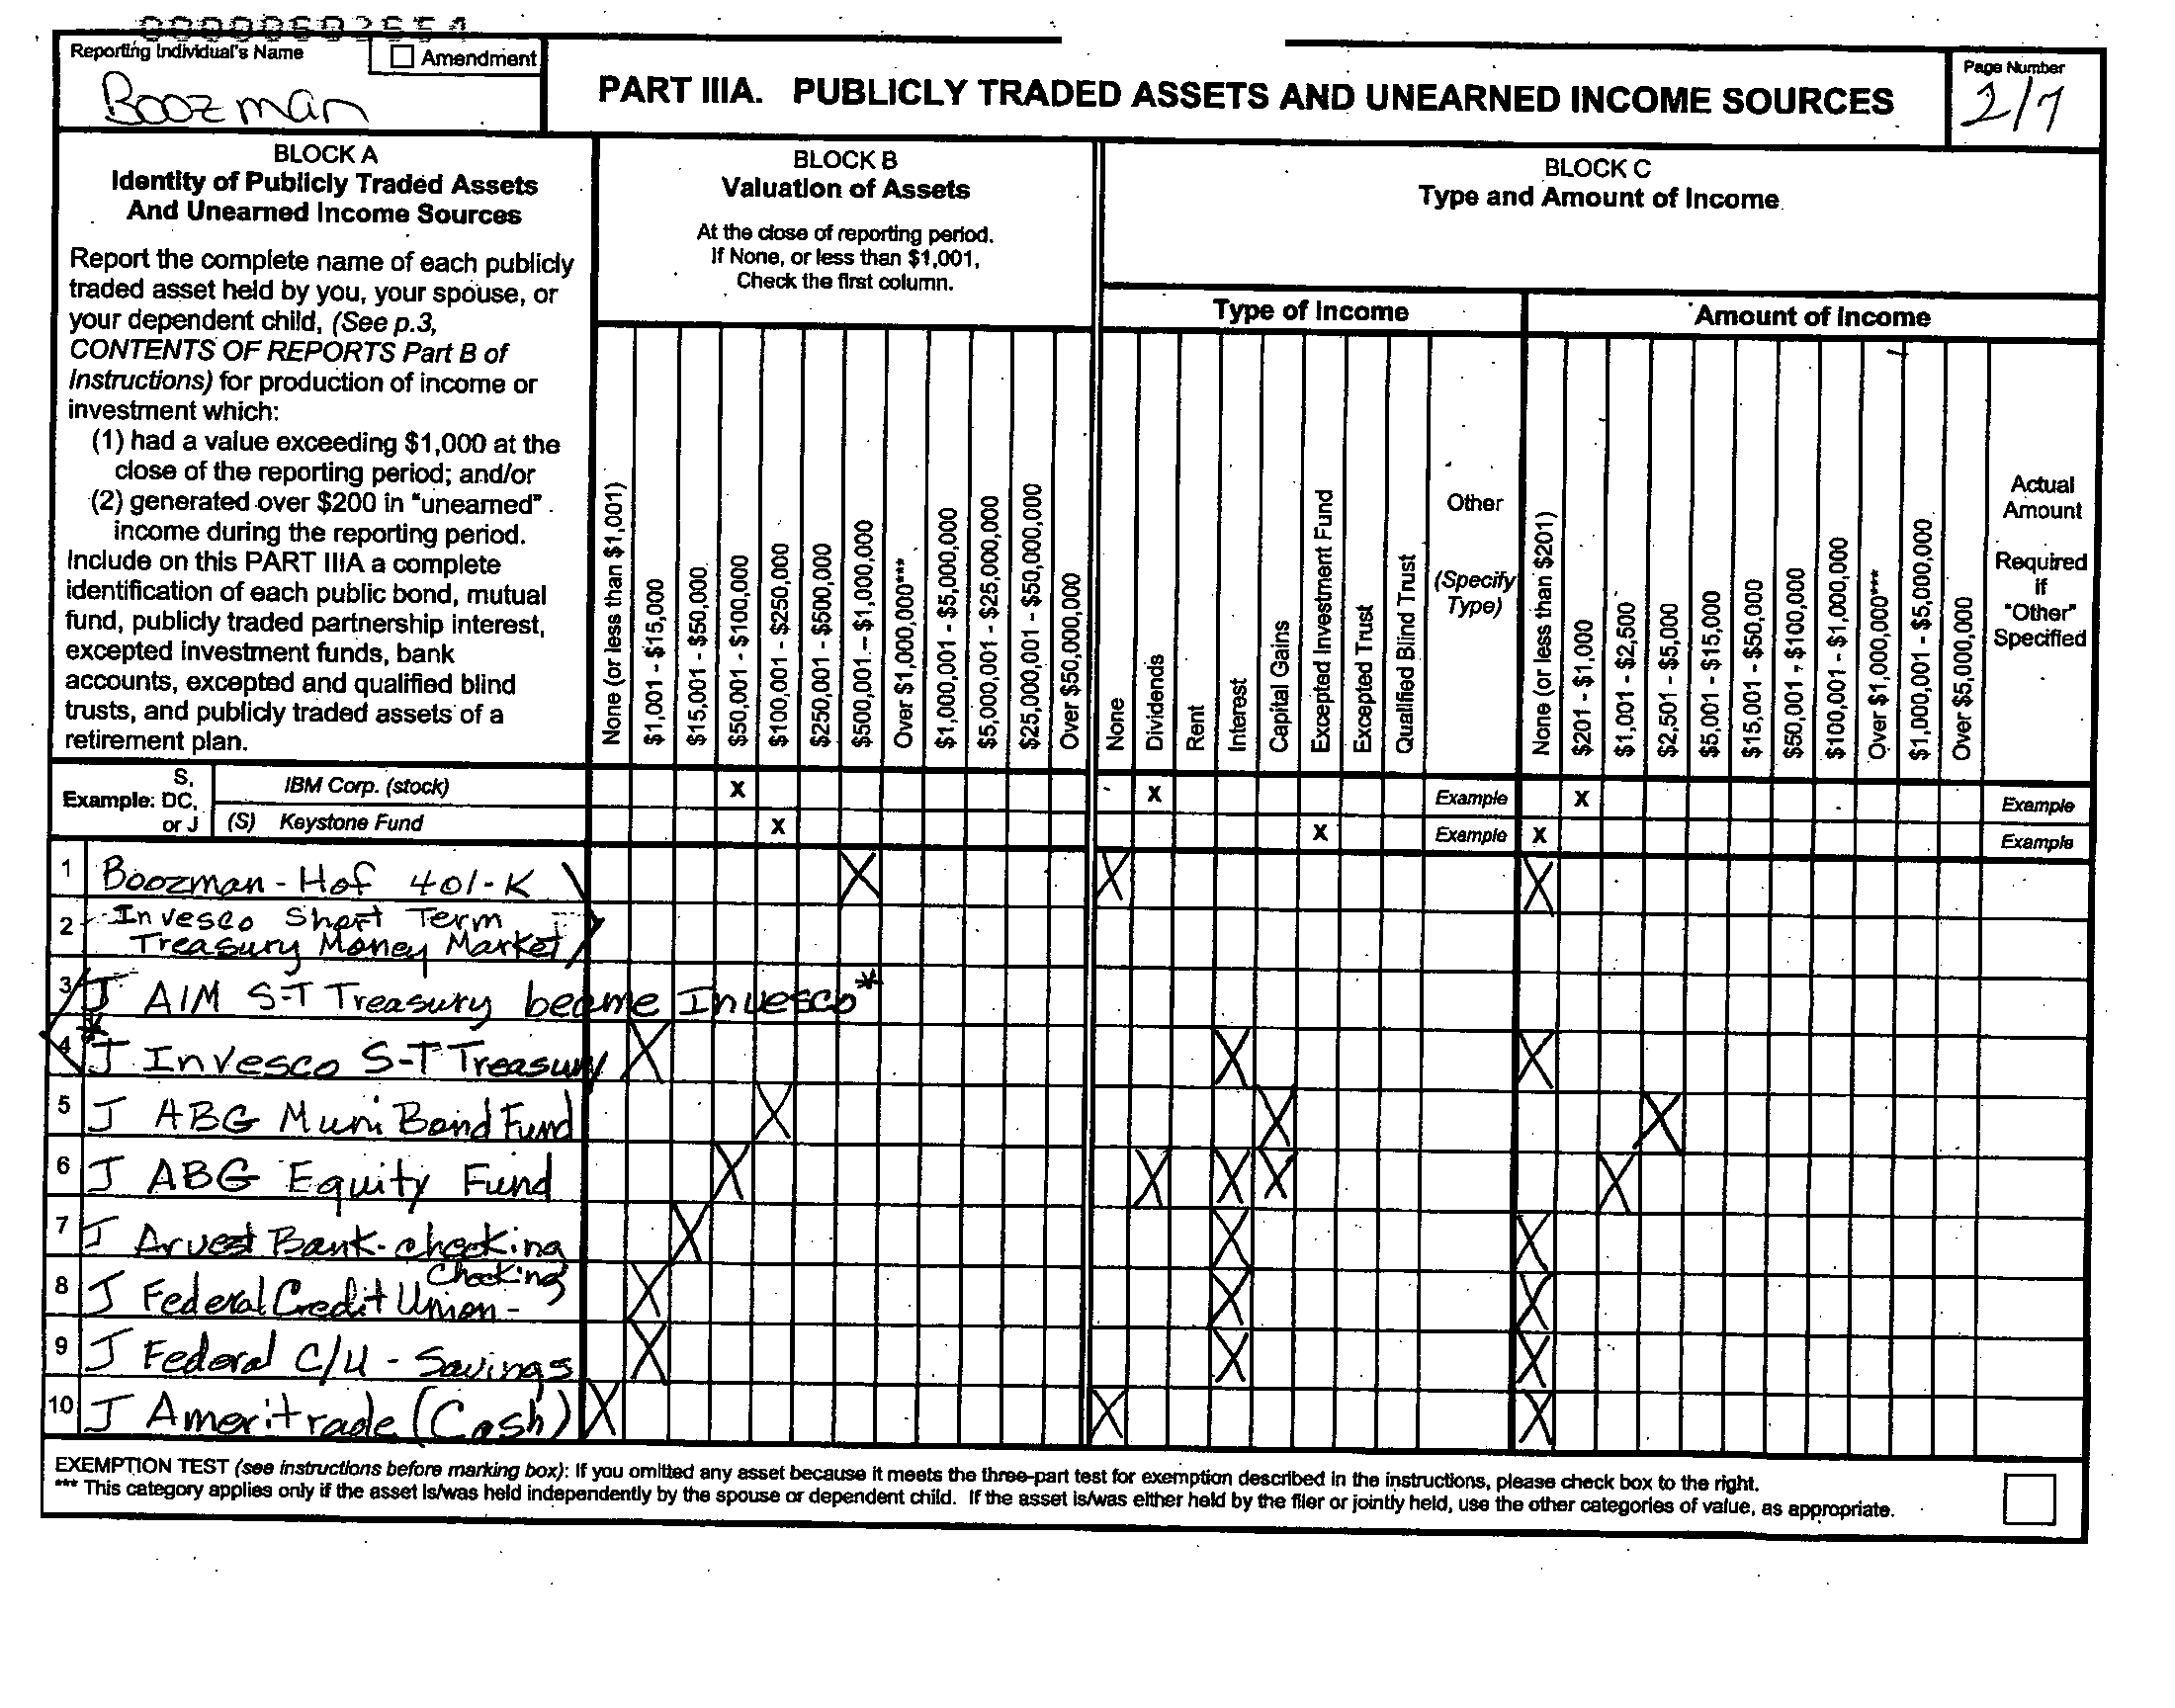 Reporting Individual's Name
☐ Amendment
Boozman
PART IIIA. PUBLICLY TRADED ASSETS AND UNEARNED INCOME SOURCES
Page Number
2/7
BLOCK A
Identity of Publicly Traded Assets
And Unearned Income Sources
Report the complete name of each publicly
traded asset held by you, your spouse, or
your dependent child, (See p.3,
CONTENTS OF REPORTS Part B of
Instructions) for production of income or
investment which:
(1) had a value exceeding $1,000 at the
close of the reporting period; and/or
(2) generated over $200 in "unearned"
income during the reporting period.
Include on this PART IIIA a complete
identification of each public bond, mutual
fund, publicly traded partnership interest,
excepted investment funds, bank
accounts, excepted and qualified blind
trusts, and publicly traded assets of a
retirement plan.
BLOCK B
Valuation of Assets
At the close of reporting period.
If None, or less than $1,001,
Check the first column.
None (or less than $1,001)
$1,001 - $15,000
$15,001 - $50,000
$50,001 - $100,000
$100,001 - $250,000
$250,001 - $500,000
$500,001 - $1,000,000
Over $1,000,000***
$1,000,001 - $5,000,000
$5,000,001 - $25,000,000
$25,000,001 - $50,000,000
Over $50,000,000
BLOCK C
Type and Amount of Income
Type of Income
None
Dividends
Rent
Interest
Capital Gains
Excepted Investment Fund
Excepted Trust
Qualified Blind Trust
Other
(Specify
Type)
Amount of Income
None (or less than $201)
$201 - $1,000
$1,001 - $2,500
$2,501 - $5,000
$5,001 - $15,000
$15,001 - $50,000
$50,001 - $100,000
$100,001 - $1,000,000
Over $1,000,000***
$1,000,001 - $5,000,000
Over $5,000,000
Actual
Amount
Required
if
"Other"
Specified
Example: S, DC, or J
IBM Corp. (stock) X X Example X Example
(S) Keystone Fund X X Example X Example
1 Boozman - Hof 401-K X X X
2 - Invesco Short Term
Treasury Money Market
3 J AIM S-T Treasury became Invesco*
4 * J Invesco S-T Treasury X X X
5 J ABG Muni Bond Fund X X X
6 J ABG Equity Fund X X X X X
7 J Arvest Bank - checking X X X
8 J Federal Credit Union - Checking X X X
9 J Federal C/U - Savings X X X
10 J Ameritrade (Cash) X X X
EXEMPTION TEST (see instructions before marking box): If you omitted any asset because it meets the three-part test for exemption described in the instructions, please check box to the right.
*** This category applies only if the asset is/was held independently by the spouse or dependent child. If the asset is/was either held by the filer or jointly held, use the other categories of value, as appropriate.